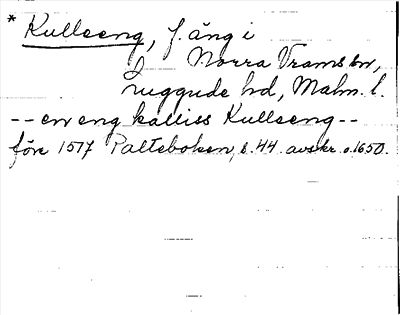 * Kullseng, f. äng i
Norra Vrams sn,
Luggude hd, Malm. l.
-- en eng kalliss Kullseng --
före 1517 Palteboken, s. 44. avskr. o. 1650.